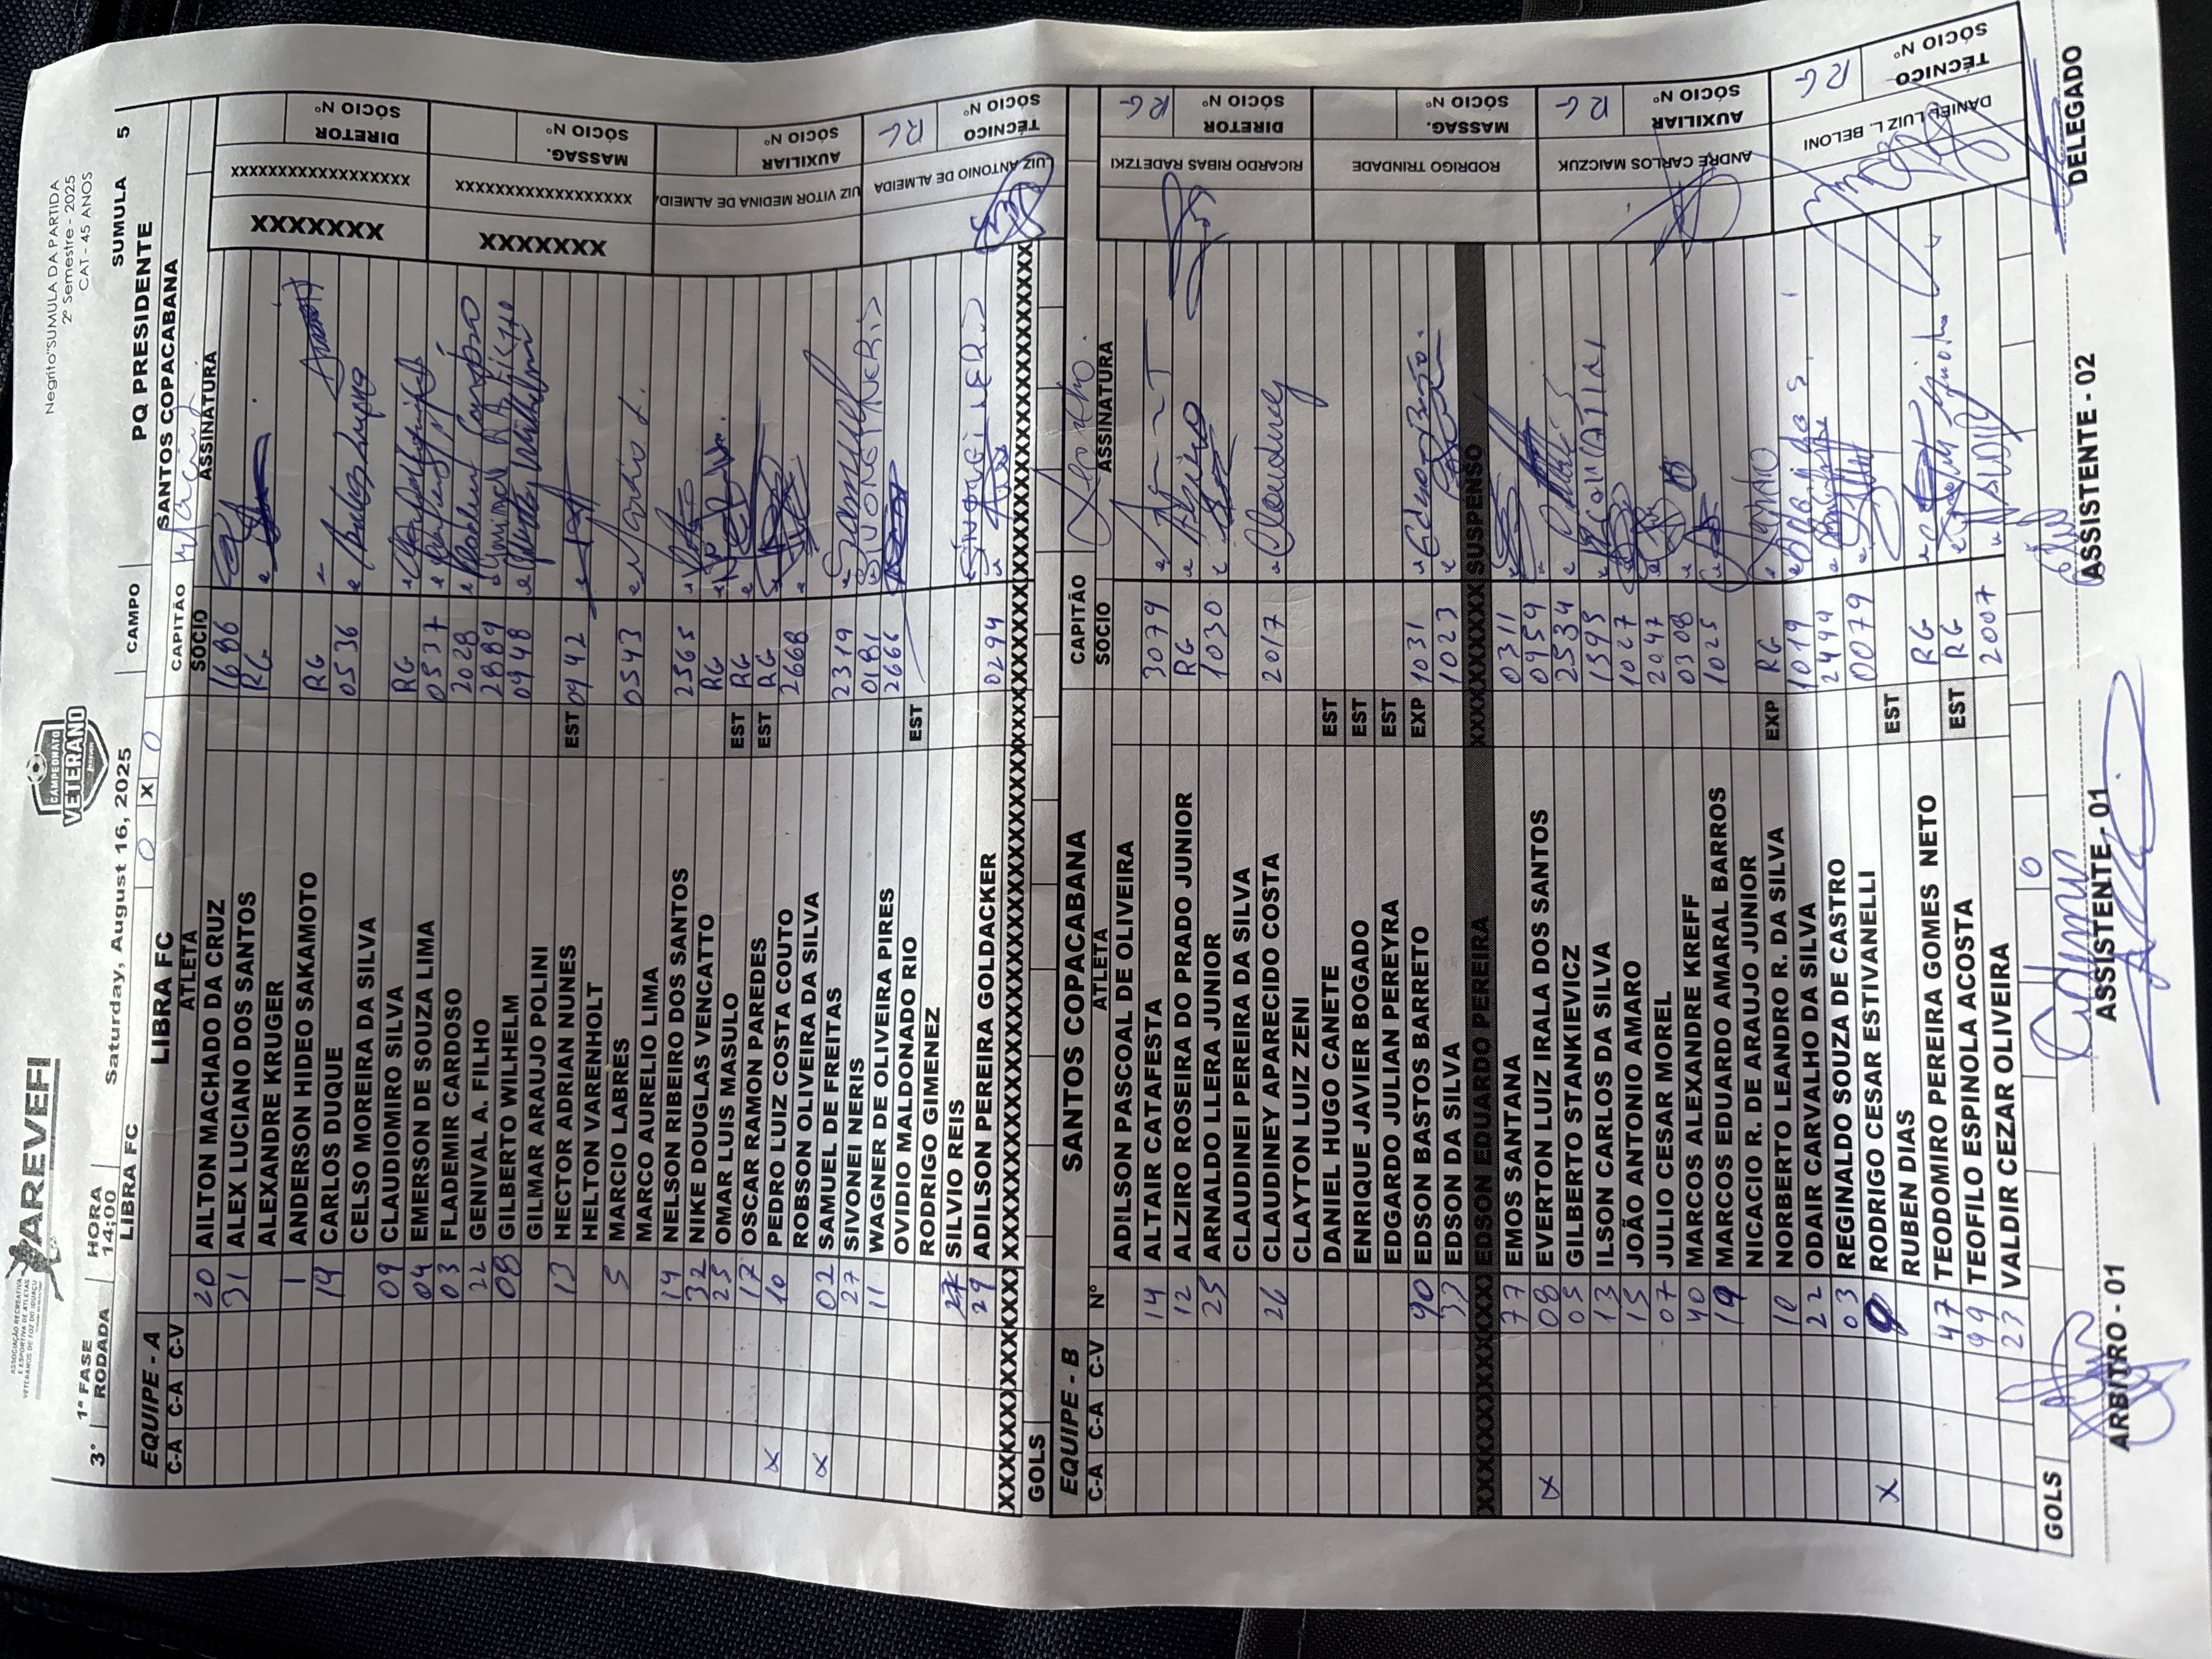 AREVEFI
ASSOCIAÇÃO RECREATIVA
E ESPORTIVA DE ATLETAS
VETERANOS DE FOZ DO IGUAÇU
CAMPEONATO
VETERANO
Negrito"SUMULA DA PARTIDA
2º Semestre - 2025
CAT - 45 ANOS
1ª FASE HORA CAMPO SUMULA
3° RODADA 14:00 Saturday, August 16, 2025 PQ PRESIDENTE 5
LIBRA FC 0 X 0 SANTOS COPACABANA
EQUIPE - A LIBRA FC CAPITÃO
C-A C-A C-V ATLETA SOCIO ASSINATURA
20 AILTON MACHADO DA CRUZ 1686
31 ALEX LUCIANO DOS SANTOS RG
ALEXANDRE KRUGER
1 ANDERSON HIDEO SAKAMOTO RG
19 CARLOS DUQUE 0536
CELSO MOREIRA DA SILVA
09 CLAUDIOMIRO SILVA RG
04 EMERSON DE SOUZA LIMA 0537
03 FLADEMIR CARDOSO 2028
22 GENIVAL A. FILHO 2889
08 GILBERTO WILHELM 0948
GILMAR ARAUJO POLINI
13 HECTOR ADRIAN NUNES EST 0942
HELTON VARENHOLT
5 MARCIO LABRES 0543
MARCO AURELIO LIMA
14 NELSON RIBEIRO DOS SANTOS 2565
32 NIKE DOUGLAS VENCATTO RG
25 OMAR LUIS MASULO EST RG
17 OSCAR RAMON PAREDES EST RG
X 10 PEDRO LUIZ COSTA COUTO 2668
ROBSON OLIVEIRA DA SILVA
X 02 SAMUEL DE FREITAS 2319
27 SIVONEI NERIS 0181 SIVONEI NERIS
11 WAGNER DE OLIVEIRA PIRES 2666
OVIDIO MALDONADO RIO EST
RODRIGO GIMENEZ
27 SILVIO REIS
29 ADILSON PEREIRA GOLDACKER 0294
GOLS
XXXXXXX XXXXXXXXXXXXXXXXXX DIRETOR SÓCIO Nº
XXXXXXX XXXXXXXXXXXXXXXXXX MASSAG. SÓCIO Nº
UIZ VITOR MEDINA DE ALMEIDA AUXILIAR SÓCIO Nº
LUIZ ANTONIO DE ALMEIDA TÉCNICO SÓCIO Nº RG
EQUIPE - B SANTOS COPACABANA CAPITÃO Leandro
C-A C-A C-V Nº ATLETA SOCIO ASSINATURA
ADILSON PASCOAL DE OLIVEIRA
14 ALTAIR CATAFESTA 3079
12 ALZIRO ROSEIRA DO PRADO JUNIOR RG
25 ARNALDO LLERA JUNIOR 1030
CLAUDINEI PEREIRA DA SILVA
26 CLAUDINEY APARECIDO COSTA 2017 Claudiney
CLAYTON LUIZ ZENI
DANIEL HUGO CANETE EST
ENRIQUE JAVIER BOGADO EST
EDGARDO JULIAN PEREYRA EST
90 EDSON BASTOS BARRETO EXP 1031
33 EDSON DA SILVA 1023
EDSON EDUARDO PEREIRA SUSPENSO
77 EMOS SANTANA 0311
X 08 EVERTON LUIZ IRALA DOS SANTOS 0959
05 GILBERTO STANKIEVICZ 2534
13 ILSON CARLOS DA SILVA 1595
15 JOÃO ANTONIO AMARO 1027
07 JULIO CESAR MOREL 2047
40 MARCOS ALEXANDRE KREFF 0308
19 MARCOS EDUARDO AMARAL BARROS 1025
NICACIO R. DE ARAUJO JUNIOR
10 NORBERTO LEANDRO R. DA SILVA EXP RG
22 ODAIR CARVALHO DA SILVA 1019
03 REGINALDO SOUZA DE CASTRO 2494
X 9 RODRIGO CESAR ESTIVANELLI 0079
RUBEN DIAS EST
47 TEODOMIRO PEREIRA GOMES NETO RG
99 TEOFILO ESPINOLA ACOSTA EST RG
23 VALDIR CEZAR OLIVEIRA 2007
GOLS 0
RICARDO RIBAS RADETZKI DIRETOR SÓCIO Nº RG
RODRIGO TRINDADE MASSAG. SÓCIO Nº
ANDRE CARLOS MAICZUK AUXILIAR SÓCIO Nº RG
DANIEL LUIZ L. BELONI TÉCNICO SÓCIO Nº RG
ARBITRO - 01 ASSISTENTE - 01 ASSISTENTE - 02 DELEGADO